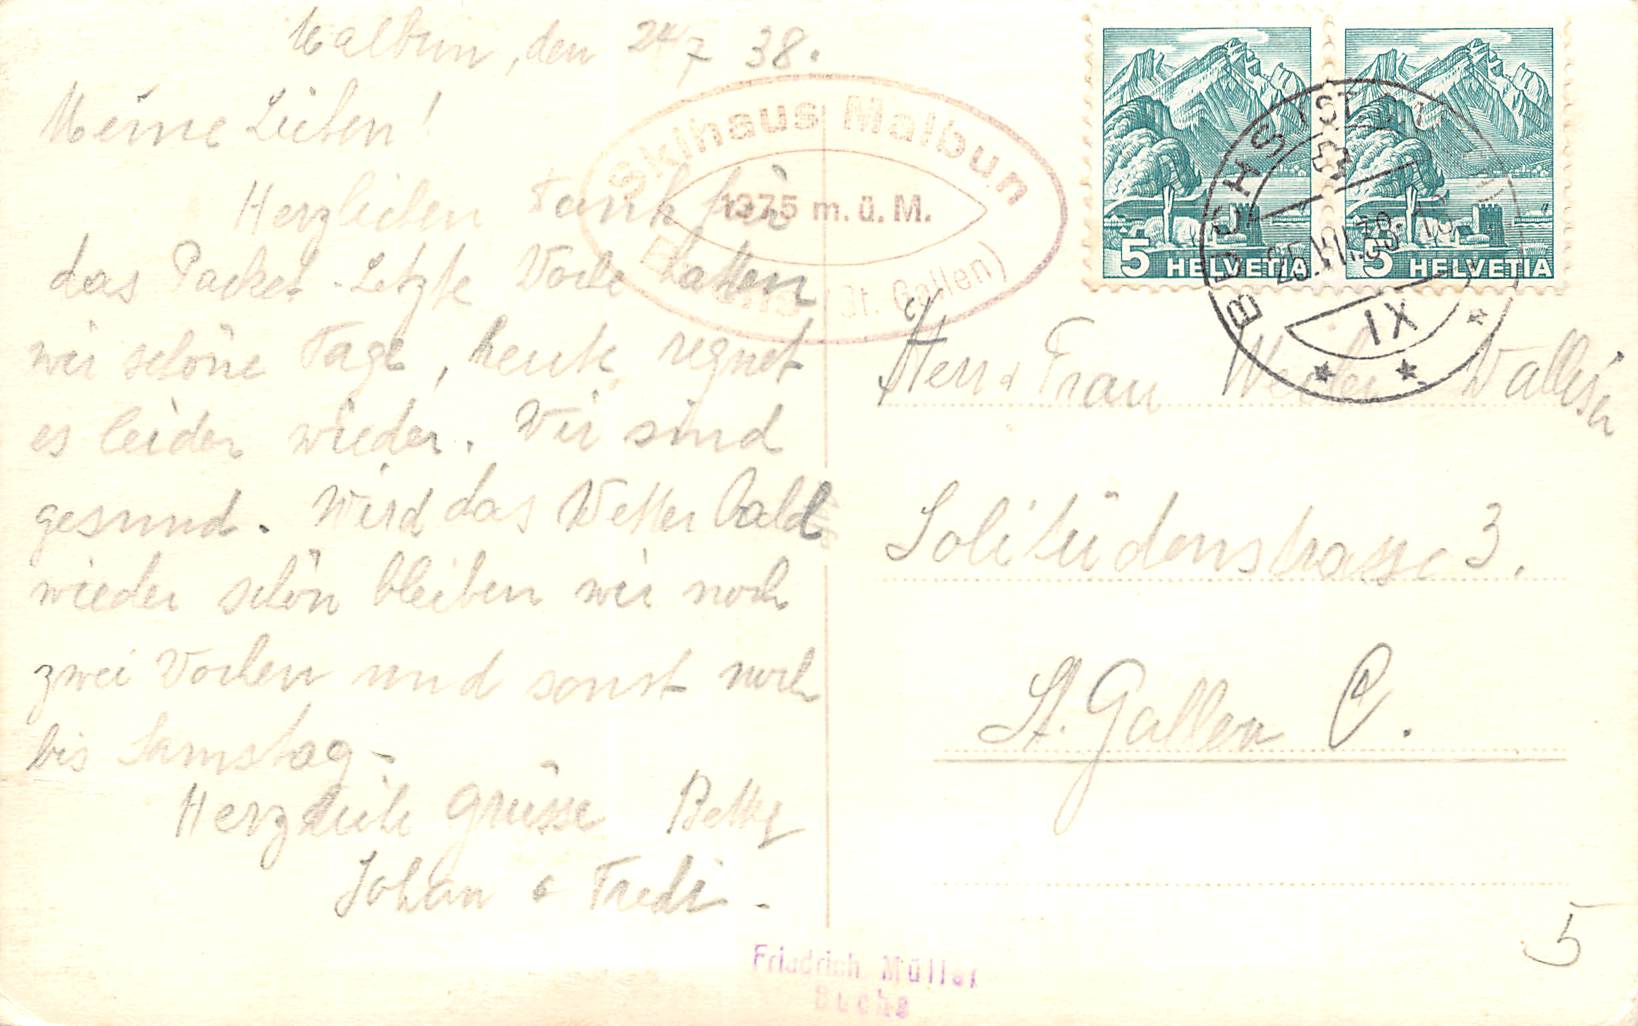 Malbun, den 24/7 38.
Meine Lieben!
Herzlichen Dank für
das Packet. Letzte Woche hatten
wir schöne Tage, heute regnet
es leider wieder. Wir sind
gesund. Wird das Wetter bald
wieder schön bleiben wir noch
zwei Wochen und sonst noch
bis Samstag-
Herzliche Grüsse Betty
Johan & Fredi.
Skihaus Malbun
1375 m.ü.M.
(St. Gallen)
5 HELVETIA
5 HELVETIA
BUCHS (ST. GALLEN)
25.VII.38.
XI
Herr & Frau Wallisch
Solitüdenstrasse 3.
St. Gallen C.
5
Friedrich Müller
Buchs